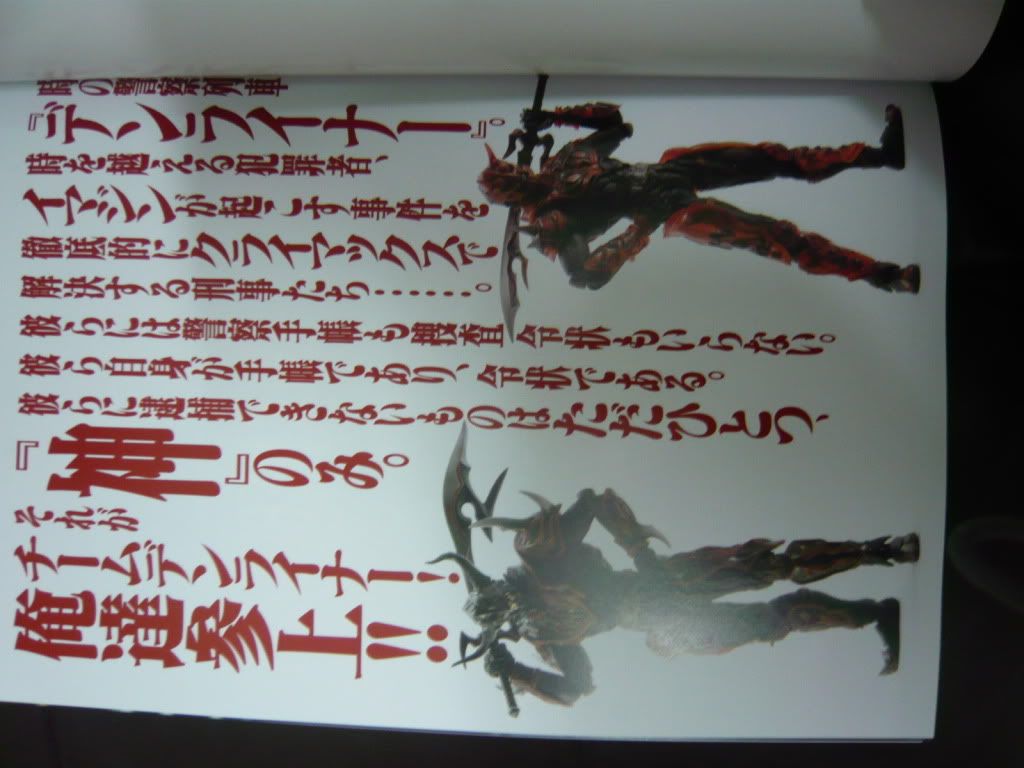 時の警察列車
『デンライナー』。
時を越える犯罪者、
イマジンが起こす事件を
徹底的にクライマックスで
解決する刑事たち……。
彼らには警察手帳も捜査令状もいらない。
彼ら自身が手帳であり、令状である。
彼らに逮捕できないものはただひとつ、
『神』のみ。
それが
チームデンライナー！
俺達参上!!